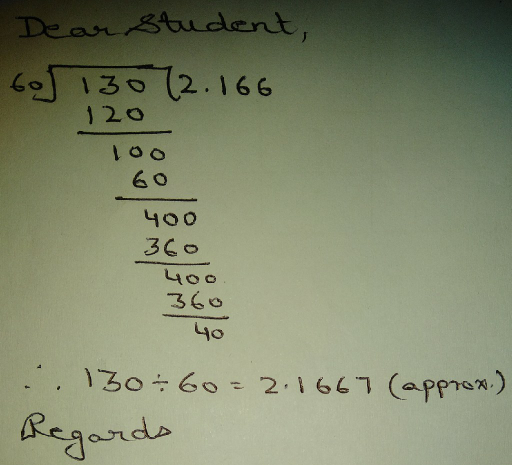 Dear Student,
60) 130 (2.166
120
100
60
400
360
400
360
40
∴ 130 ÷ 60 = 2.1667 (approx.)
Regards